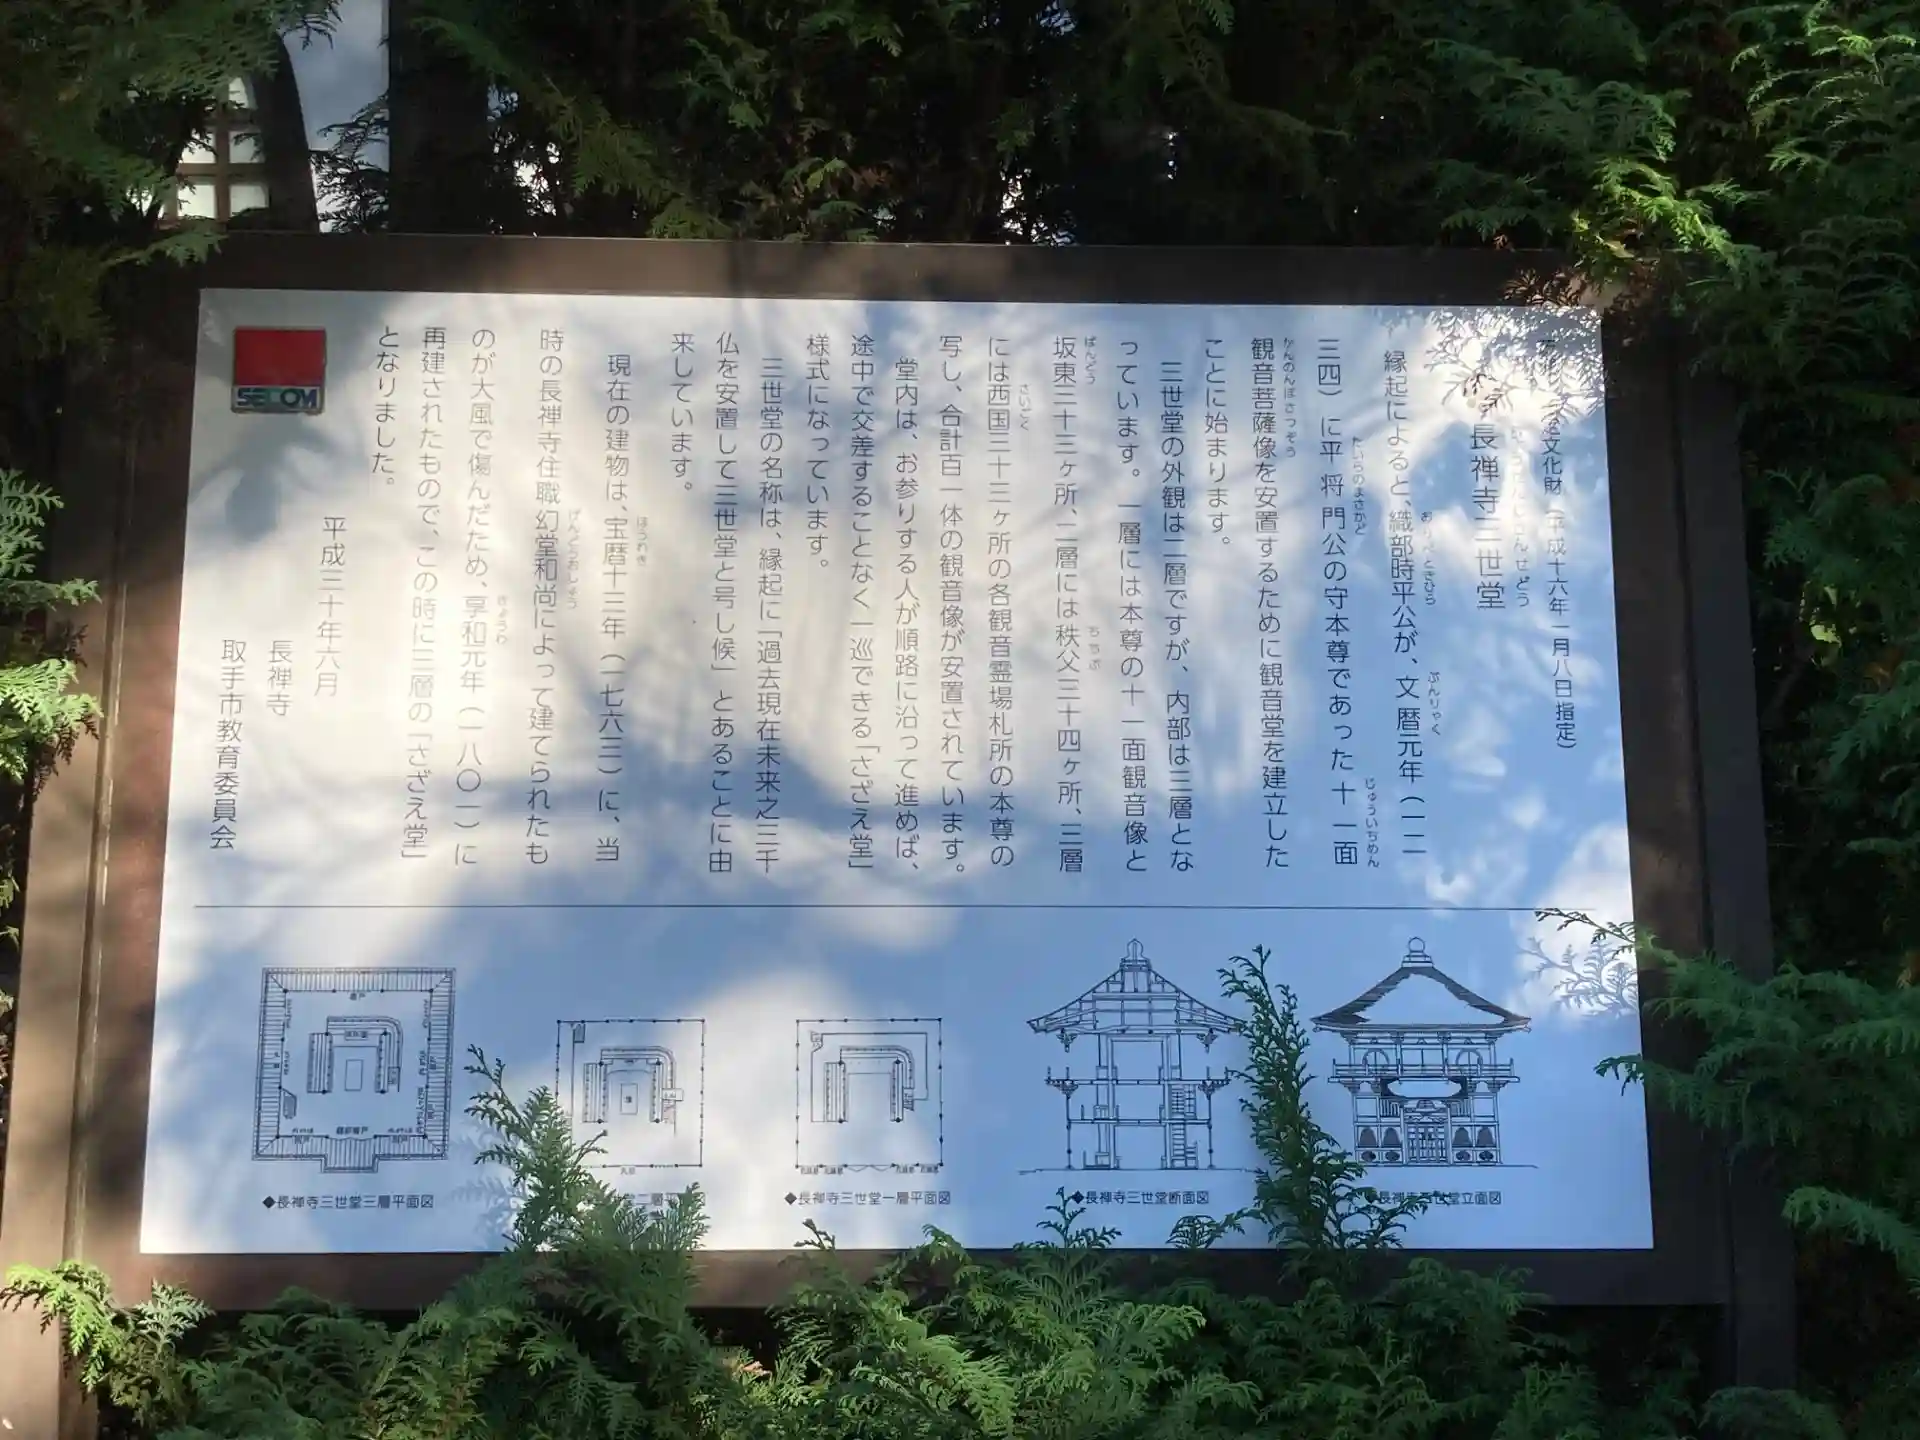 文化財（平成十六年一月八日指定）
長禅寺三世堂
縁起によると、織部時平公が、文暦元年（一二
三四）に平将門公の守本尊であった十一面
観音菩薩像を安置するために観音堂を建立した
ことに始まります。
三世堂の外観は二層ですが、内部は三層とな
っています。一層には本尊の十一面観音像と
坂東三十三ヶ所、二層には秩父三十四ヶ所、三層
には西国三十三ヶ所の各観音霊場札所の本尊の
写し、合計百一体の観音像が安置されています。
堂内は、お参りする人が順路に沿って進めば、
途中で交差することなく一巡できる「さざえ堂」
様式になっています。
三世堂の名称は、縁起に「過去現在未来之三千
仏を安置して三世堂と号し候」とあることに由
来しています。
現在の建物は、宝暦十三年（一七六三）に、当
時の長禅寺住職幻堂和尚によって建てられたも
のが大風で傷んだため、享和元年（一八〇一）に
再建されたもので、この時に三層の「さざえ堂」
となりました。
平成三十年六月
長禅寺
取手市教育委員会
SECOM
長禅寺三世堂立面図
◆長禅寺三世堂断面図
◆長禅寺三世堂一層平面図
堂二層平面図
◆長禅寺三世堂三層平面図